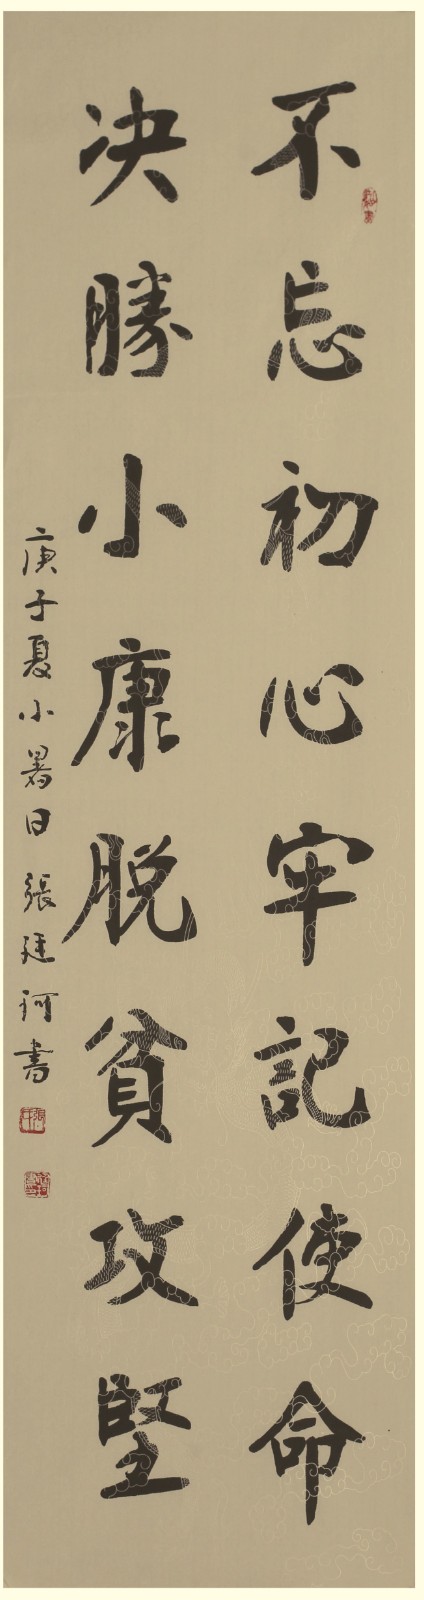 不忘初心牢記使命
决勝小康脱貧攻堅
庚子夏小暑日張廷訶書